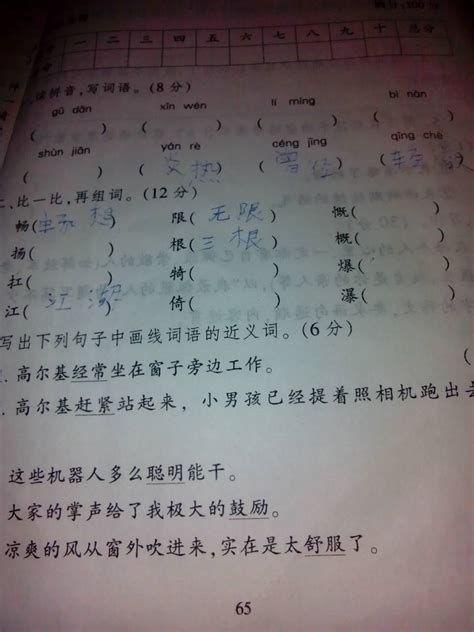 满分:100分
一 二 三 四 五 六 七 八 九 十 总分
读拼音,写词语。(8分)
gū dān xīn wén lí míng bì nàn
( ) ( ) ( ) ( )
shùn jiān yán rè céng jīng qīng chè
( ) (炎热) (曾经) ( )
二、比一比,再组词。(12分)
畅(畅想) 限(无限) 慨( )
扬( ) 根(三根) 概( )
扛( ) 犄( ) 爆( )
江(江湖) 倚( ) 瀑( )
写出下列句子中画线词语的近义词。(6分)
. 高尔基经常坐在窗子旁边工作。 (
. 高尔基赶紧站起来,小男孩已经提着照相机跑出去
这些机器人多么聪明能干。
大家的掌声给了我极大的鼓励。
凉爽的风从窗外吹进来,实在是太舒服了。
65